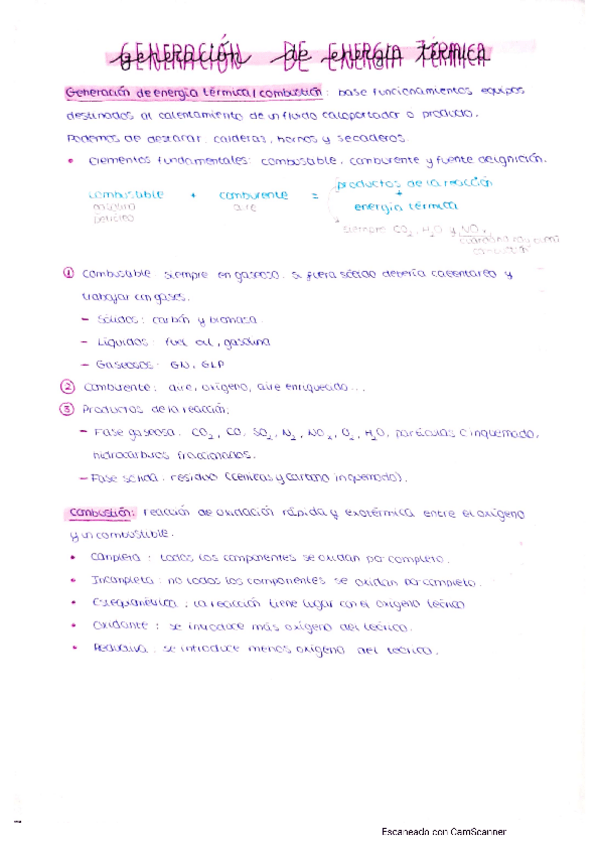 GENERACIÓN DE ENERGIA TÉRMICA
Generación de energía térmica / combustión: base funcionamientos equipos
destinados al calentamiento de un fluido caloportador o producto.
Podemos de destacar: calderas, hornos y secaderos.
• Elementos fundamentales: combustible, comburente y fuente de ignición.
combustible + comburente = productos de la reacción
+
aire energía térmica
siempre CO2, H2O y NOx
① Combustible: siempre en gaseoso. si fuera sólido debería calentarlo y
trabajar con gases.
- Sólidos: carbón y biomasa.
- Líquidos: fuel oil, gasolina
- Gaseosos: GN, GLP
② Comburente: aire, oxígeno, aire enriquecido...
③ Productos de la reacción:
- Fase gaseosa: CO2, CO, SO2, N2, NOx, O2, H2O, partículas C inquemado,
hidrocarburos fraccionados.
- Fase sólida: residuo (cenizas y carbono inquemado).
Combustión: reacción de oxidación rápida y exotérmica entre el oxígeno
y un combustible.
• Completa: todos los componentes se oxidan por completo.
• Incompleta: no todos los componentes se oxidan por completo.
• Estequiométrica: la reacción tiene lugar con el oxígeno teórico
• Oxidante: se introduce más oxígeno del teórico.
• Reductora: se introduce menos oxígeno del teórico.
Escaneado con CamScanner